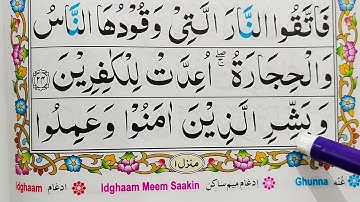 فَاتَّقُوا النَّارَ الَّتِیْ وَقُوْدُهَا النَّاسُ
وَالْحِجَارَةُ ۖۚ اُعِدَّتْ لِلْكٰفِرِیْنَ ﴿۲۴﴾
وَبَشِّرِ الَّذِیْنَ اٰمَنُوْا وَعَمِلُوا
منزل ۱
Idghaam ادغام Idghaam Meem Saakin ادغام میم ساکن Ghunna غنّه